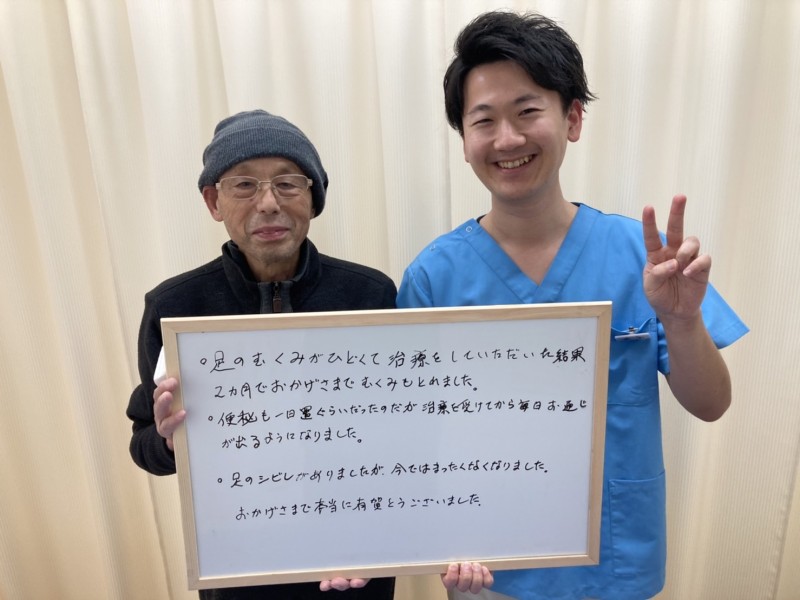 ・足のむくみがひどくて治療をしていただいた結果
2カ月でおかげさまでむくみもとれました。
・便秘も一日置くらいだったのだが治療を受けてから毎日お通じ
が出るようになりました。
・足のシビレがありましたが、今ではまったくなくなりました。
おかげさまで本当に有賀とうございました。